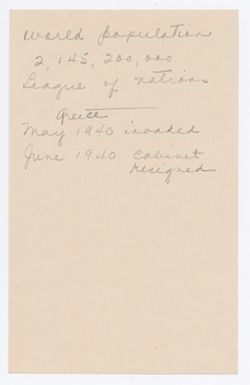 World population
2,145,200,000
League of nations
Greice
May 1940 invaded
June 1940 cabinet
resigned